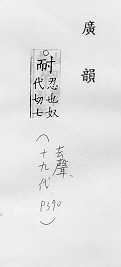 廣韻
耐忍也奴
代切七
去聲、
（十九代 P390）